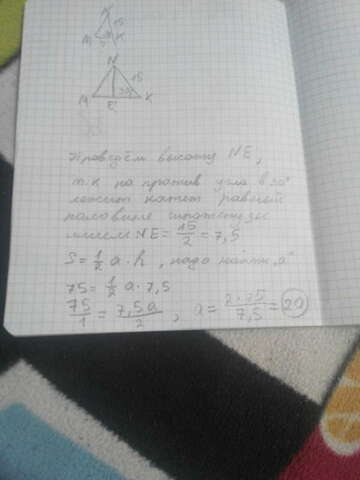 N
15
M
K
N
15
30°
M
E
K
Проведём высоту NE,
т.к на против угла в 30°
лежит катет равный
половине гипотенузы
имеем NE = 15/2 = 7,5
S = 1/2 a · h, надо найти „a"
75 = 1/2 a · 7,5
75/1 = 7,5a/2 , a = 2·75/7,5 = 20